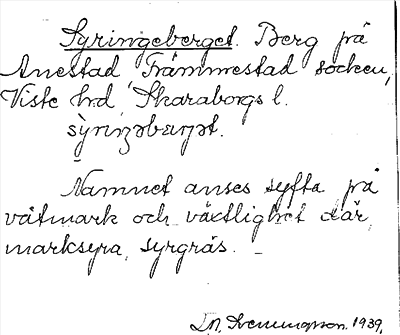 Syringeberget. Berg på
Anestad Främmestad socken,
Viste hrd Skaraborgs l.
syriŋəbærjət.
Namnet anses syfta på
våtmark och växtlighet där,
marksyra, syrgräs. –
1939.